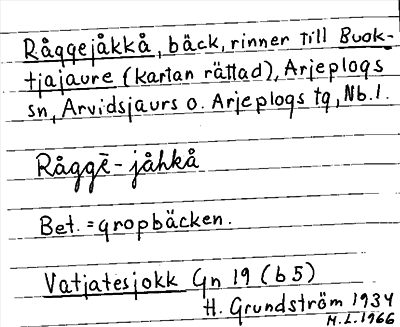 Råggejåkkå, bäck, rinner till Buok-
tjajaure (kartan rättad), Arjeplogs
sn, Arvidsjaurs o. Arjeplogs tg, Nb.l.
Råggē-jåhkå
Bet. = gropbäcken.
Vatjatesjokk Gn 19 (b5)
H. Grundström 1934
M.L. 1966